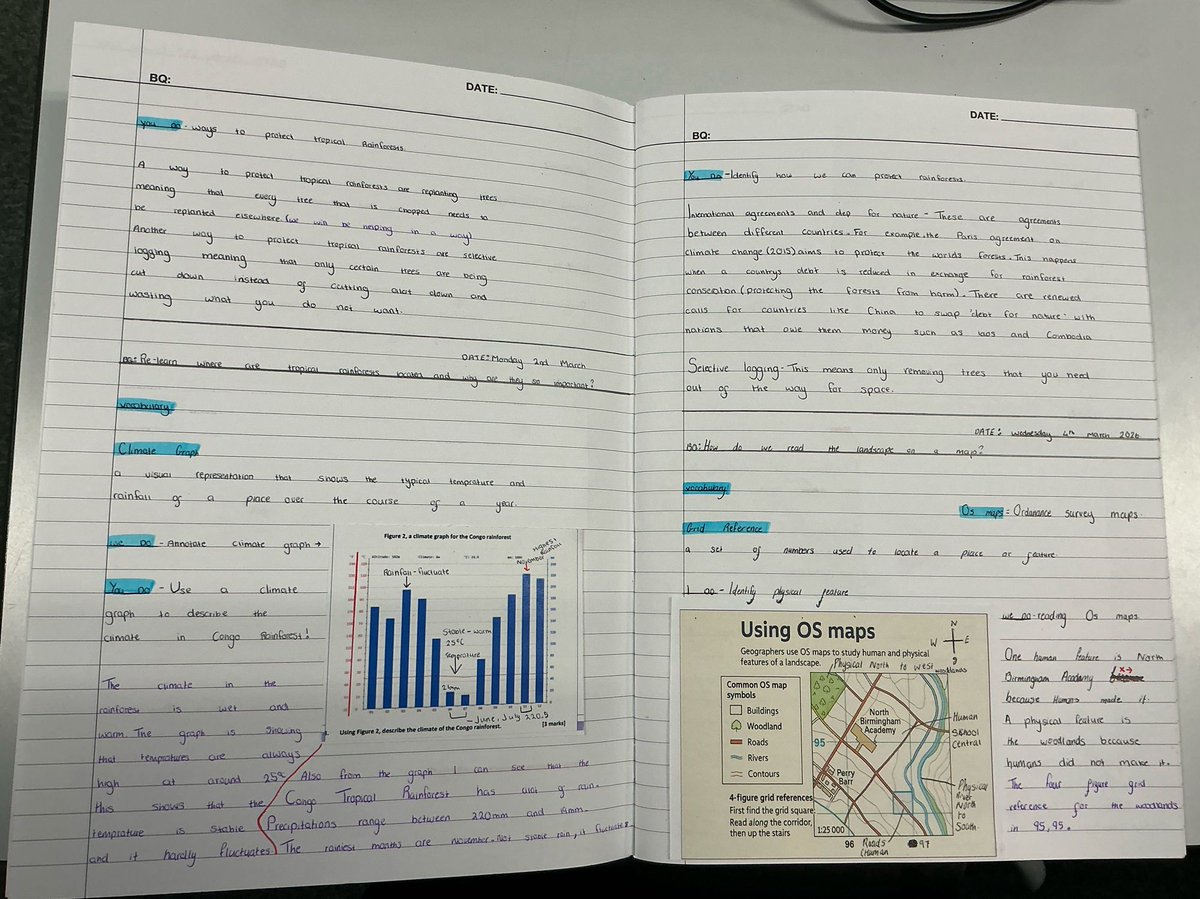 BQ:
DATE:
You do - ways to protect tropical Rainforests.
A way to protect tropical rainforests are replanting trees
meaning that every tree that is chopped needs to
be replanted elsewhere. (we will be helping in a way)
Another way to protect tropical rainforests are selective
logging meaning that only certain trees are being
cut down instead of cutting alot down and
wasting what you do not want.
DATE: Monday 2nd March
BQ: Re-learn where are tropical rainforests located and why are they so important?
vocabulary
Climate Graph
a visual representation that shows the typical temprature and
rainfall of a place over the course of a year.
We do - Annotate climate graph →
You do - Use a climate
graph to describe the
climate in Congo Rainforest!
Figure 2, a climate graph for the Congo rainforest
Rainfall - fluctuate
highest
November Rainfall
Stable - warm
25°C
temprature
June, July 220.5
[3 marks]
Using Figure 2, describe the climate of the Congo rainforest.
The climate in the
rainforest is wet and
warm. The graph is showing
that tempratures are always
high at around 25°C Also from the graph I can see that the
this shows that the Congo Tropical Rainforest has alot of rain.
temprature is stable Precipitations range between 220mm and 18mm.
and it hardly fluctuates. The rainiest months are November. Not stable rain, it fluctuates.
BQ:
DATE:
You do - Identify how we can protect rainforests.
International agreements and dep for nature - These are agreements
between different countries. For example, the Paris agreement on
climate change (2015) aims to protect the worlds forests. This happens
when a countrys debt is reduced in exchange for rainforest
conseration (protecting the forests from harm). There are renewed
calls for countries like China to swap 'debt for nature' with
nations that owe them money such as laos and Cambodia
Selective logging - This means only removing trees that you need
out of the way for space.
DATE: Wednesday 4th March 2026
BQ: How do we read the landscape on a map?
vocabulary
Os maps = Ordanance survey maps.
Grid Reference
a set of numbers used to locate a place or feature
I do - Identify physical feature
Using OS maps
Geographers use OS maps to study human and physical
features of a landscape.
Physical North to west
woodlands
N
W
E
S
Common OS map
symbols
Buildings
Woodland
Roads
Rivers
Contours
4-figure grid references
First find the grid square
Read along the corridor,
then up the stairs
North
Birmingham
Academy
95
Perry
Barr
1:25 000
96
97
Roads
(Human
Human
School
Central
Physical
River
North
to
South.
we do - reading Os maps
One human feature is North
Birmingham Academy
because Humans made it.
A physical feature is
the woodlands because
humans did not make it.
The four figure grid
reference for the woodlands
in 95,95.